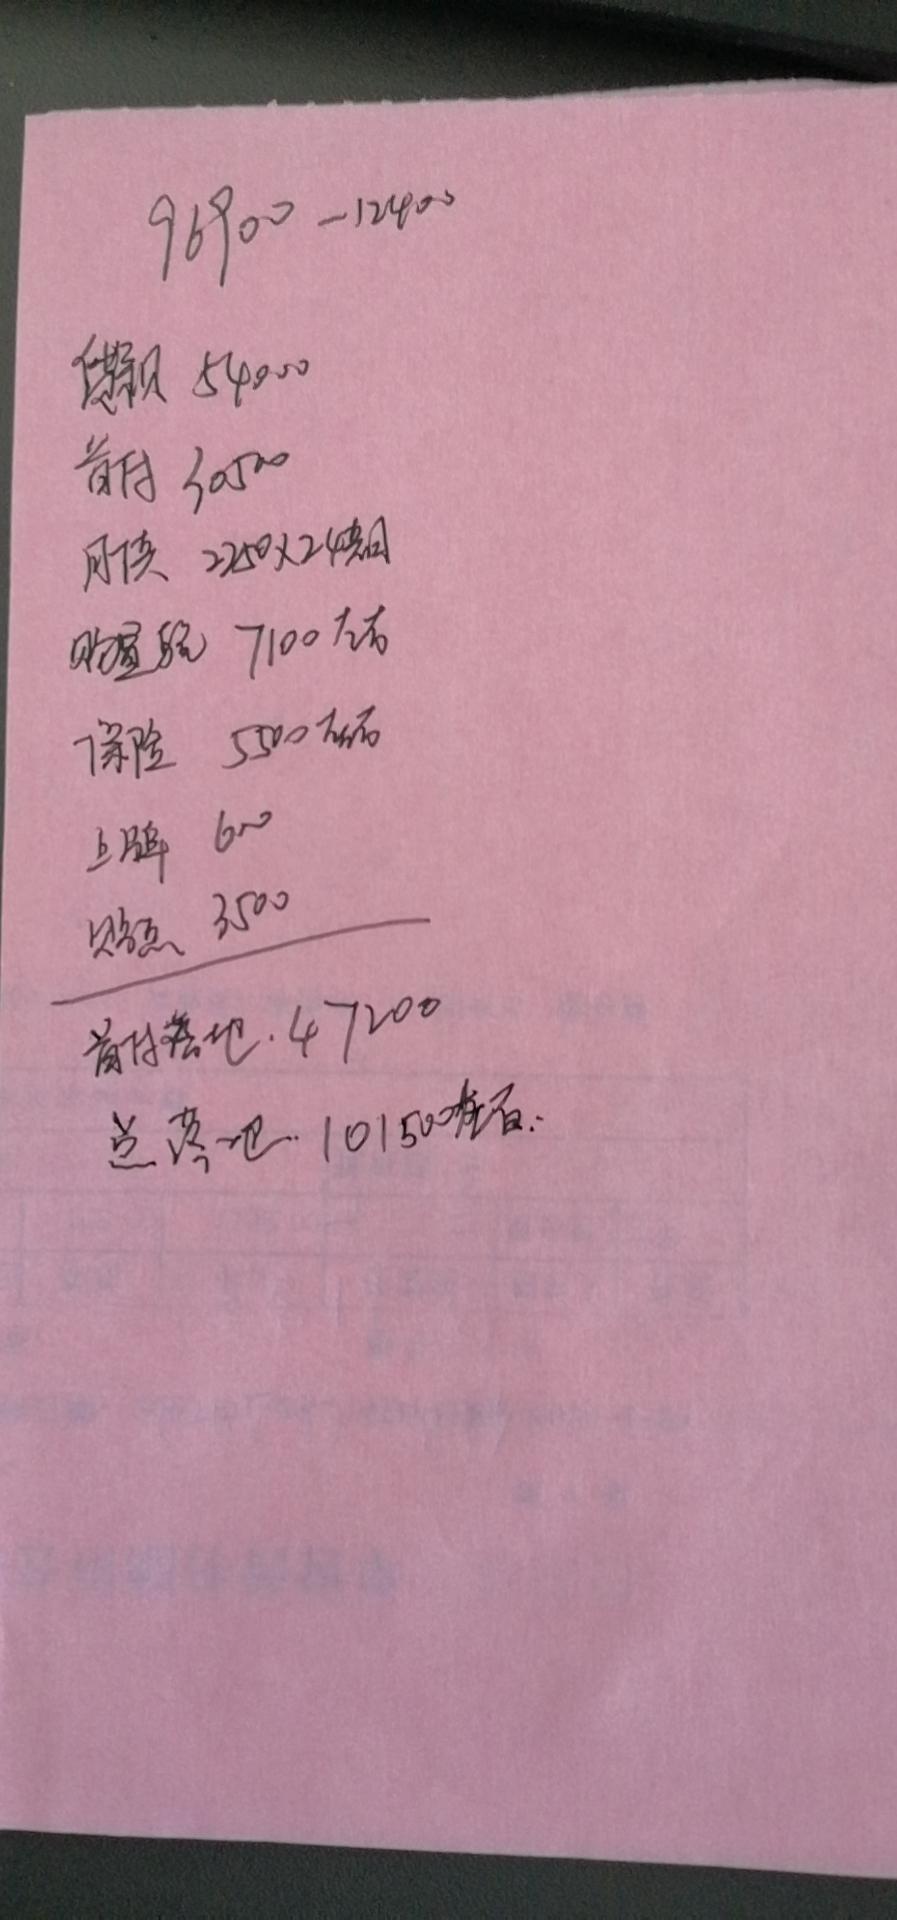 96900-12400
贷款 54000
首付 30500
月供 2250×24期
购置税 7100左右
保险 5500左右
上牌 600
贴息 3500
首付落地.47200
总落地..101500左右.